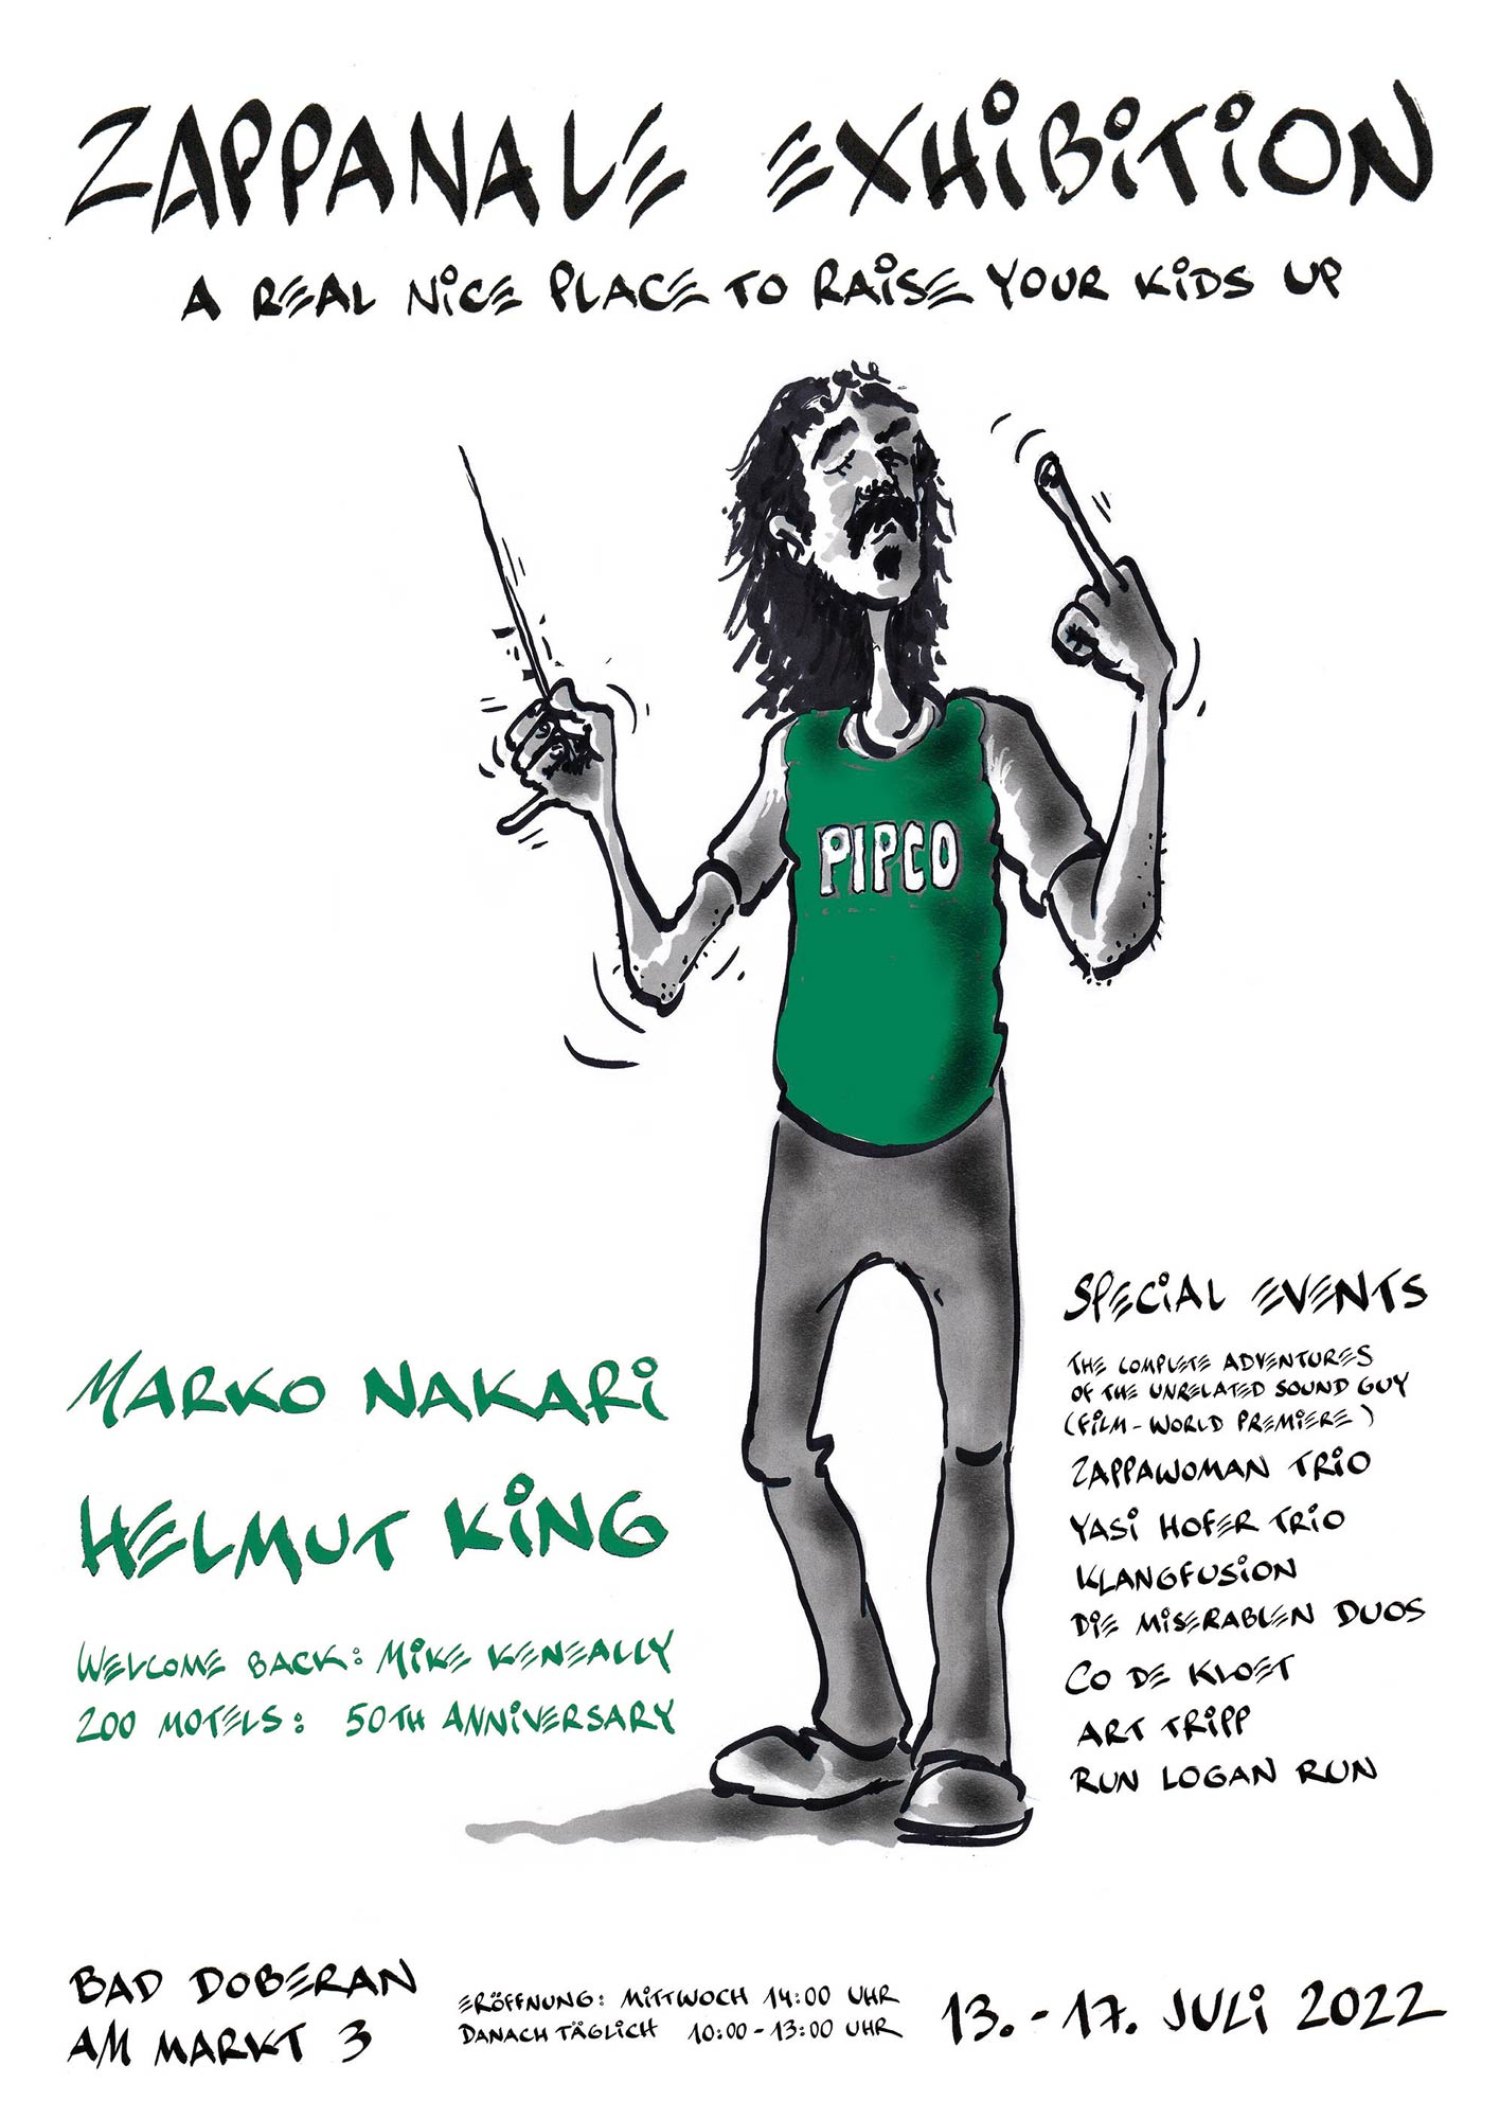 ZAPPANALE EXHIBITION
A REAL NICE PLACE TO RAISE YOUR KIDS UP
PIPCO
MARKO NAKARI
HELMUT KING
WELCOME BACK: MIKE KENEALLY
200 MOTELS: 50TH ANNIVERSARY
SPECIAL EVENTS
THE COMPLETE ADVENTURES
OF THE UNRELATED SOUND GUY
(FILM - WORLD PREMIERE)
ZAPPAWOMAN TRIO
YASI HOFER TRIO
KLANGFUSION
DIE MISERABLEN DUOS
CO DE KLOET
ART TRIPP
RUN LOGAN RUN
BAD DOBERAN
AM MARKT 3
ERÖFFNUNG: MITTWOCH 14:00 UHR
DANACH TÄGLICH 10:00 - 13:00 UHR
13. - 17. JULI 2022